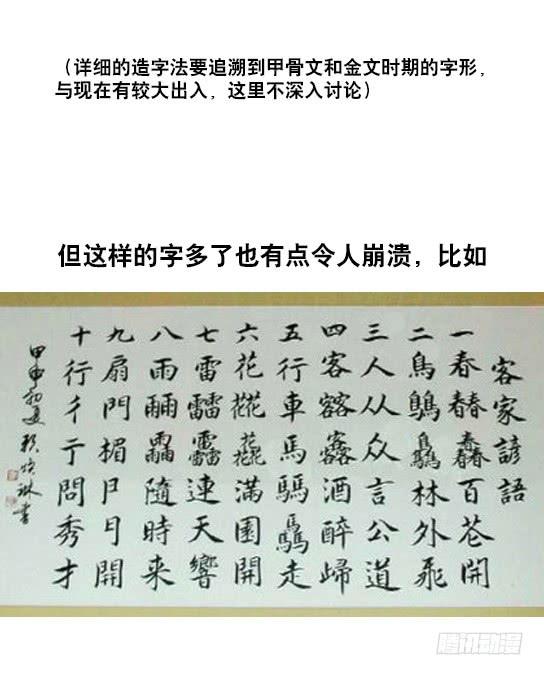 （详细的造字法要追溯到甲骨文和金文时期的字形，
与现在有较大出入，这里不深入讨论）
但这样的字多了也有点令人崩溃，比如
客家諺語
一春百開
二鳥林外飛
三人从众言公道
四客酒醉歸
五行車馬騳驫走
六花滿園開
七雷連天響
八雨隨時来
九扇門楣開
十行彳亍問秀才
甲申初夏 琳書
腾讯动漫